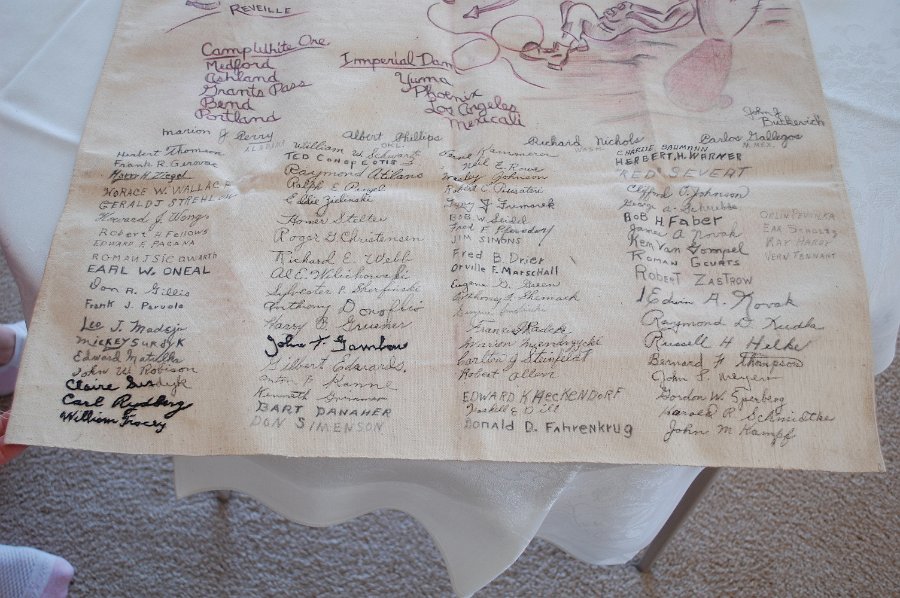 REVEILLE
Camp White Ore.
Medford
Ashland
Grants Pass
Bend
Portland
Imperial Dam
Yuma
Phoenix
Los Angeles
Mexicali
John J
Butkevich
Marion J. Perry
Albert Phillips
OKL.
Richard Nichols
Carlos Gallegos
N. MEX.
Herbert Thomson
Frank R. Gerovac
HORACE W. WALLACE
GERALD J STREHLOW
Howard J Wongs
ROBERT H FELLOWS
EDWARD E PAGANA
EARL W. ONEAL
Don A. Gillis
Frank J. Paruolo
Leo J. Madejn
MICKEY SURDYK
Edward Matulka
John W Robison
Claire Surdyk
Carl Rudberg
William Tracey
William W. Schwartz
TED CONOPEOTIS
Raymond Atilano
Ralph E Pingel
Eddie Zielinski
Homer Stelter
Roger G. Christensen
Richard E. Webb
Al E. Wilichowski
Sylvester P. Skerfinski
Anthony Donofrio
Harry C. Gruesner
John T. Gambow
Gilbert Edwards
Anton F Hanne
Kenneth
BART DANAHER
DON SIMENSON
Kammerer
Neil E. Rowe
Wesley Johnson
Robert C.
BOB W. Seidel
Fred F. Pfensdorf
JIM SIMONS
FRED B. DRIER
ORVILLE F. MARSCHALL
Eugene G. Green
Anthony F Shemach
Robert Allen
EDWARD K HECKENDORF
Haskell E. Dill
DONALD D. FAHRENKRUG
CHARLIE BAUMANN
HERBERT, H. WARNER
RED SEVERT
Clifford O. Johnson
George A. Schreibbe
BOB H FABER
James A Novak
KEN VAN GOMPEL
ROMAN GEURTS
ROBERT ZASTROW
Edwin A. Kovak
Raymond D. Kudla
Russell H Helke
Bernard F. Thompson
John L. Meyers
Gordon W. Sperberg
Harold R Schmidtke
John M Kampf
RAY HARDT
VERN TENNANT